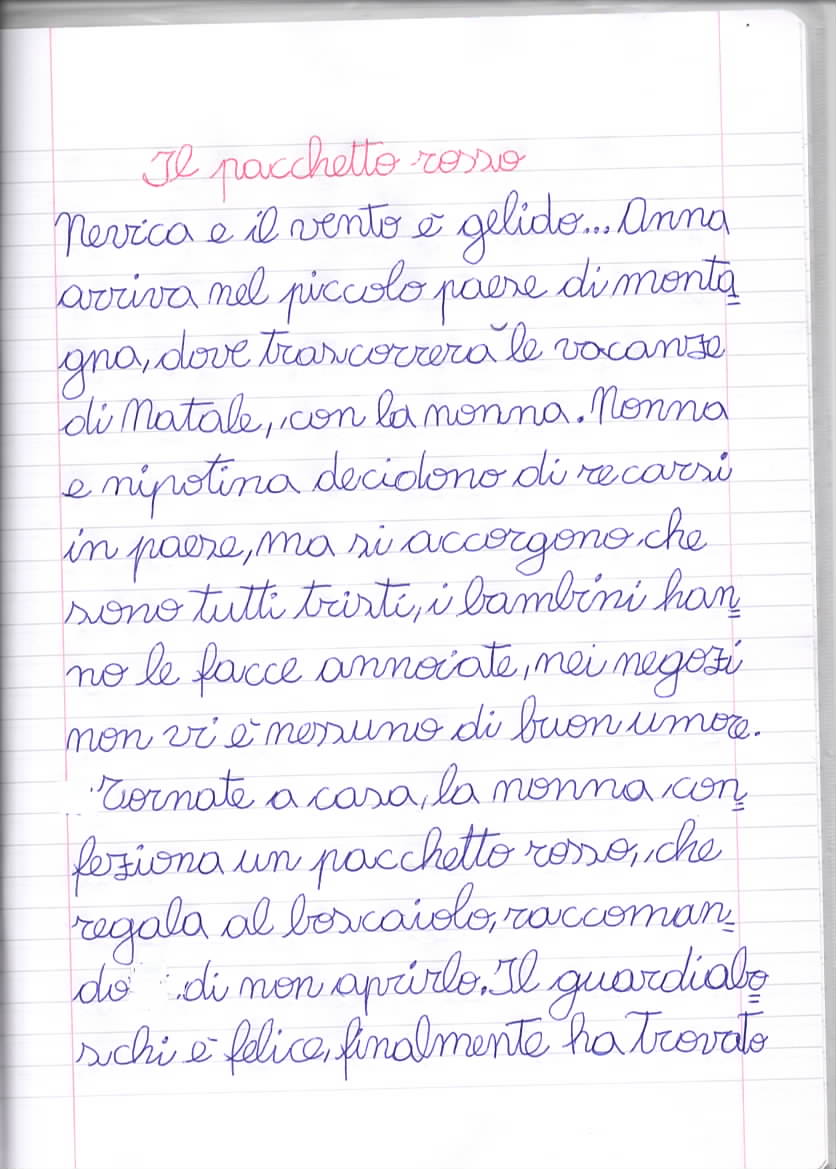 Il pacchetto rosso
Nevica e il vento è gelido... Anna
arriva nel piccolo paese di monta=
gna, dove trascorrerà le vacanze
di Natale, con la nonna. Nonna
e nipotina decidono di recarsi
in paese, ma si accorgono che
sono tutti tristi, i bambini han=
no le facce annoiate, nei negozi
non vi è nessuno di buon umore.
Tornate a casa, la nonna con=
feziona un pacchetto rosso, che
regala al boscaiolo, raccoman=
do di non aprirlo. Il guardiabo=
schi è felice, finalmente ha trovato